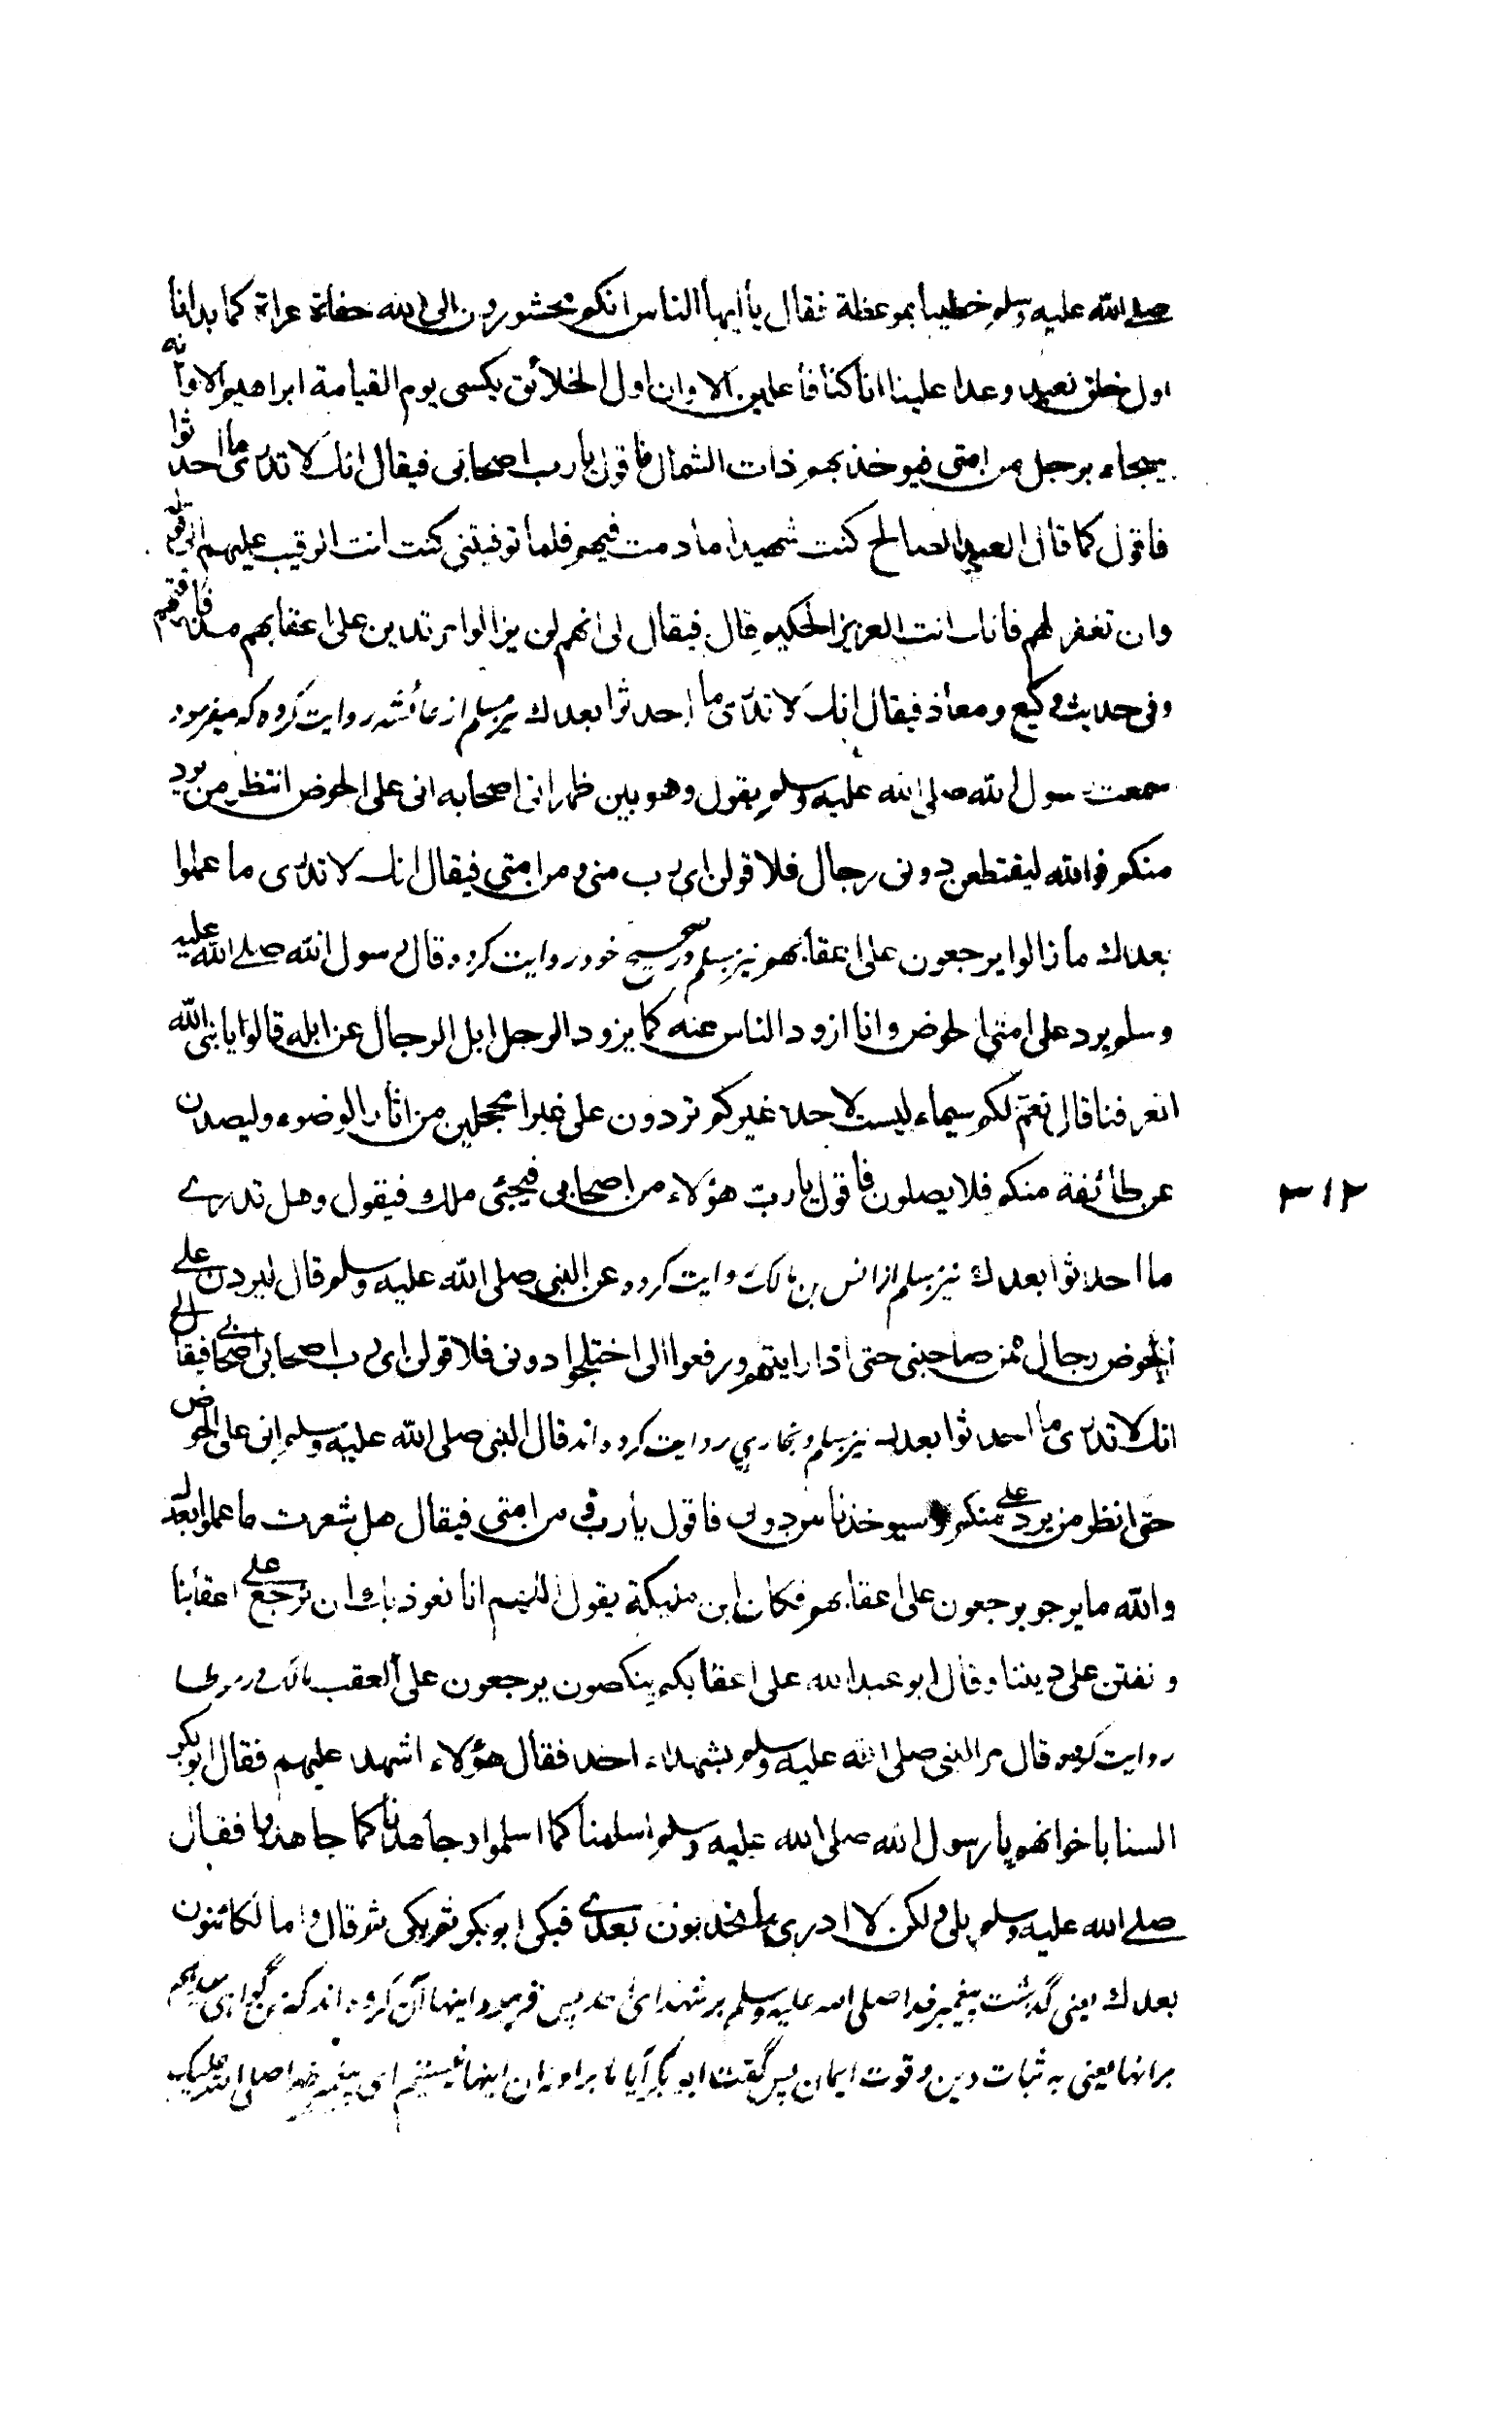 صلے الله عليه وسلم خطيبا بموعظة فقال يا ايها الناس انكم تحشورون الى الله حفاة عراة كما بدانا
اول خلق نعيده وعدا علينا انا كنا فاعلين الا وان اول الخلائق يكسى يوم القيامة ابراهيم الا وانه
يجاء برجل من امتى فيوخذ بهم ذات الشمال فاقول يا رب اصحابى فيقال انك لا تدرى ما احدثوا
فاقول كما قال العبد الصالح كنت شهيدا ما دمت فيهم فلما توفيتنى كنت انت الرقيب عليهم الى قوله
وان تغفر لهم فانك انت العزيز الحكيم قال فيقال لى انهم لن يزالوا مرتدين على اعقابهم منذ فارقتهم
وفى حديث وكيع ومعاذ فيقال انك لا تدرى ما احدثوا بعدك نيز مسلم از عائشه روايت كرده كه ميفرمود
سمعت رسول الله صلى الله عليه وسلم يقول وهو بين ظهرانى اصحابه انى على الحوض انتظر من يرد
منكم فوالله ليقتطعن دونى رجال فلاقولن اى رب منى ومن امتى فيقال انك لا تدرى ما عملوا
بعدك ما زالوا يرجعون على اعقابهم نيز مسلم در صحيح خود روايت كرده قال رسول الله صلے الله عليه
وسلم يرد على امتى الحوض وانا ازود الناس عنه كما يزود الرجل ابل الرجال عن ابله قالوا يا نبى الله
اتعرفنا قال نعم لكم سيماء ليست لاحد غيركم تردون على غبرا محجلين من اثار الوضوء وليصدن
عن طائفة منكم فلا يصلون فاقول يا رب هؤلاء من اصحابى فيجئى ملك فيقول وهل تدرے
۳۱۲
ما احدثوا بعدك نيز مسلم از انس بن مالك روايت كرده عن النبى صلى الله عليه وسلم قال ليردن علے
الحوض رجال ممن صاحبنى حتى اذا رايتهم ورفعوا الى اختلجوا دونى فلاقولن اى رب اصحابى اصحابى فيقال لى
انك لا تدرى ما احدثوا بعدك نيز مسلم وبخاري روايت كرده اند قال النبى صلى الله عليه وسلم انى على الحوض
حتى انظر من يرد على منكم وسيوخذ ناس دونى فاقول يا رب منى ومن امتى فيقال هل شعرت ما عملوا بعدك
والله ما يرجو يرجعون على اعقابهم فكان ابن مليكة يقول اللهم انا نعوذ بك ان نرجع علے اعقابنا
و نفتن على ديننا وقال ابو عبد الله على اعقابكم ينكصون يرجعون على العقب مالك در موطا
روايت كرده قال مر النبى صلى الله عليه وسلم بشهداء احد فقال هؤلاء اشهد عليهم فقال ابوبكر
السنا باخوانهم يا رسول الله صلى الله عليه وسلم اسلمنا كما اسلموا وجاهدنا كما جاهدوا فقال
صلے الله عليه وسلم بلى ولكن لا ادرى ما تحدثون بعدے فبكى ابوبكر ثم بكى ثم قال وانا لكائنون
بعدك يعنى گذشت پيغمبر خدا صلى الله عليه وسلم بر شهداى احد پس فرمود اينها آن كرده اند كه من گواهى ميدهم
برانها يعنى به ثبات دين وقوت ايمان پس گفت ابو بكر آيا ما برادران اينها نيستيم اى پيغمبر خدا صلى الله عليك